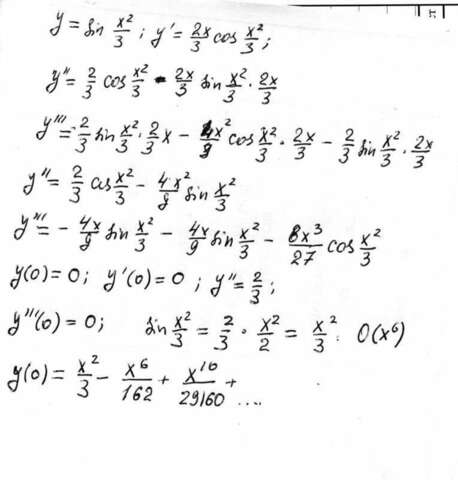 y = sin x²/3 ; y' = 2x/3 cos x²/3 ;
y'' = 2/3 cos x²/3 - 2x/3 sin x²/3 · 2x/3
y''' = -2/3 sin x²/3 · 2/3 x - 4x²/9 cos x²/3 · 2x/3 - 2/3 sin x²/3 · 2x/3
y'' = 2/3 cos x²/3 - 4x²/9 sin x²/3
y''' = - 4x/9 sin x²/3 - 4x/9 sin x²/3 - 8x³/27 cos x²/3
y(0) = 0; y'(0) = 0 ; y'' = 2/3 ;
y'''(0) = 0; sin x²/3 = 2/3 · x²/2 = x²/3. O(x⁶)
y(0) = x²/3 - x⁶/162 + x¹⁰/29160 + ....